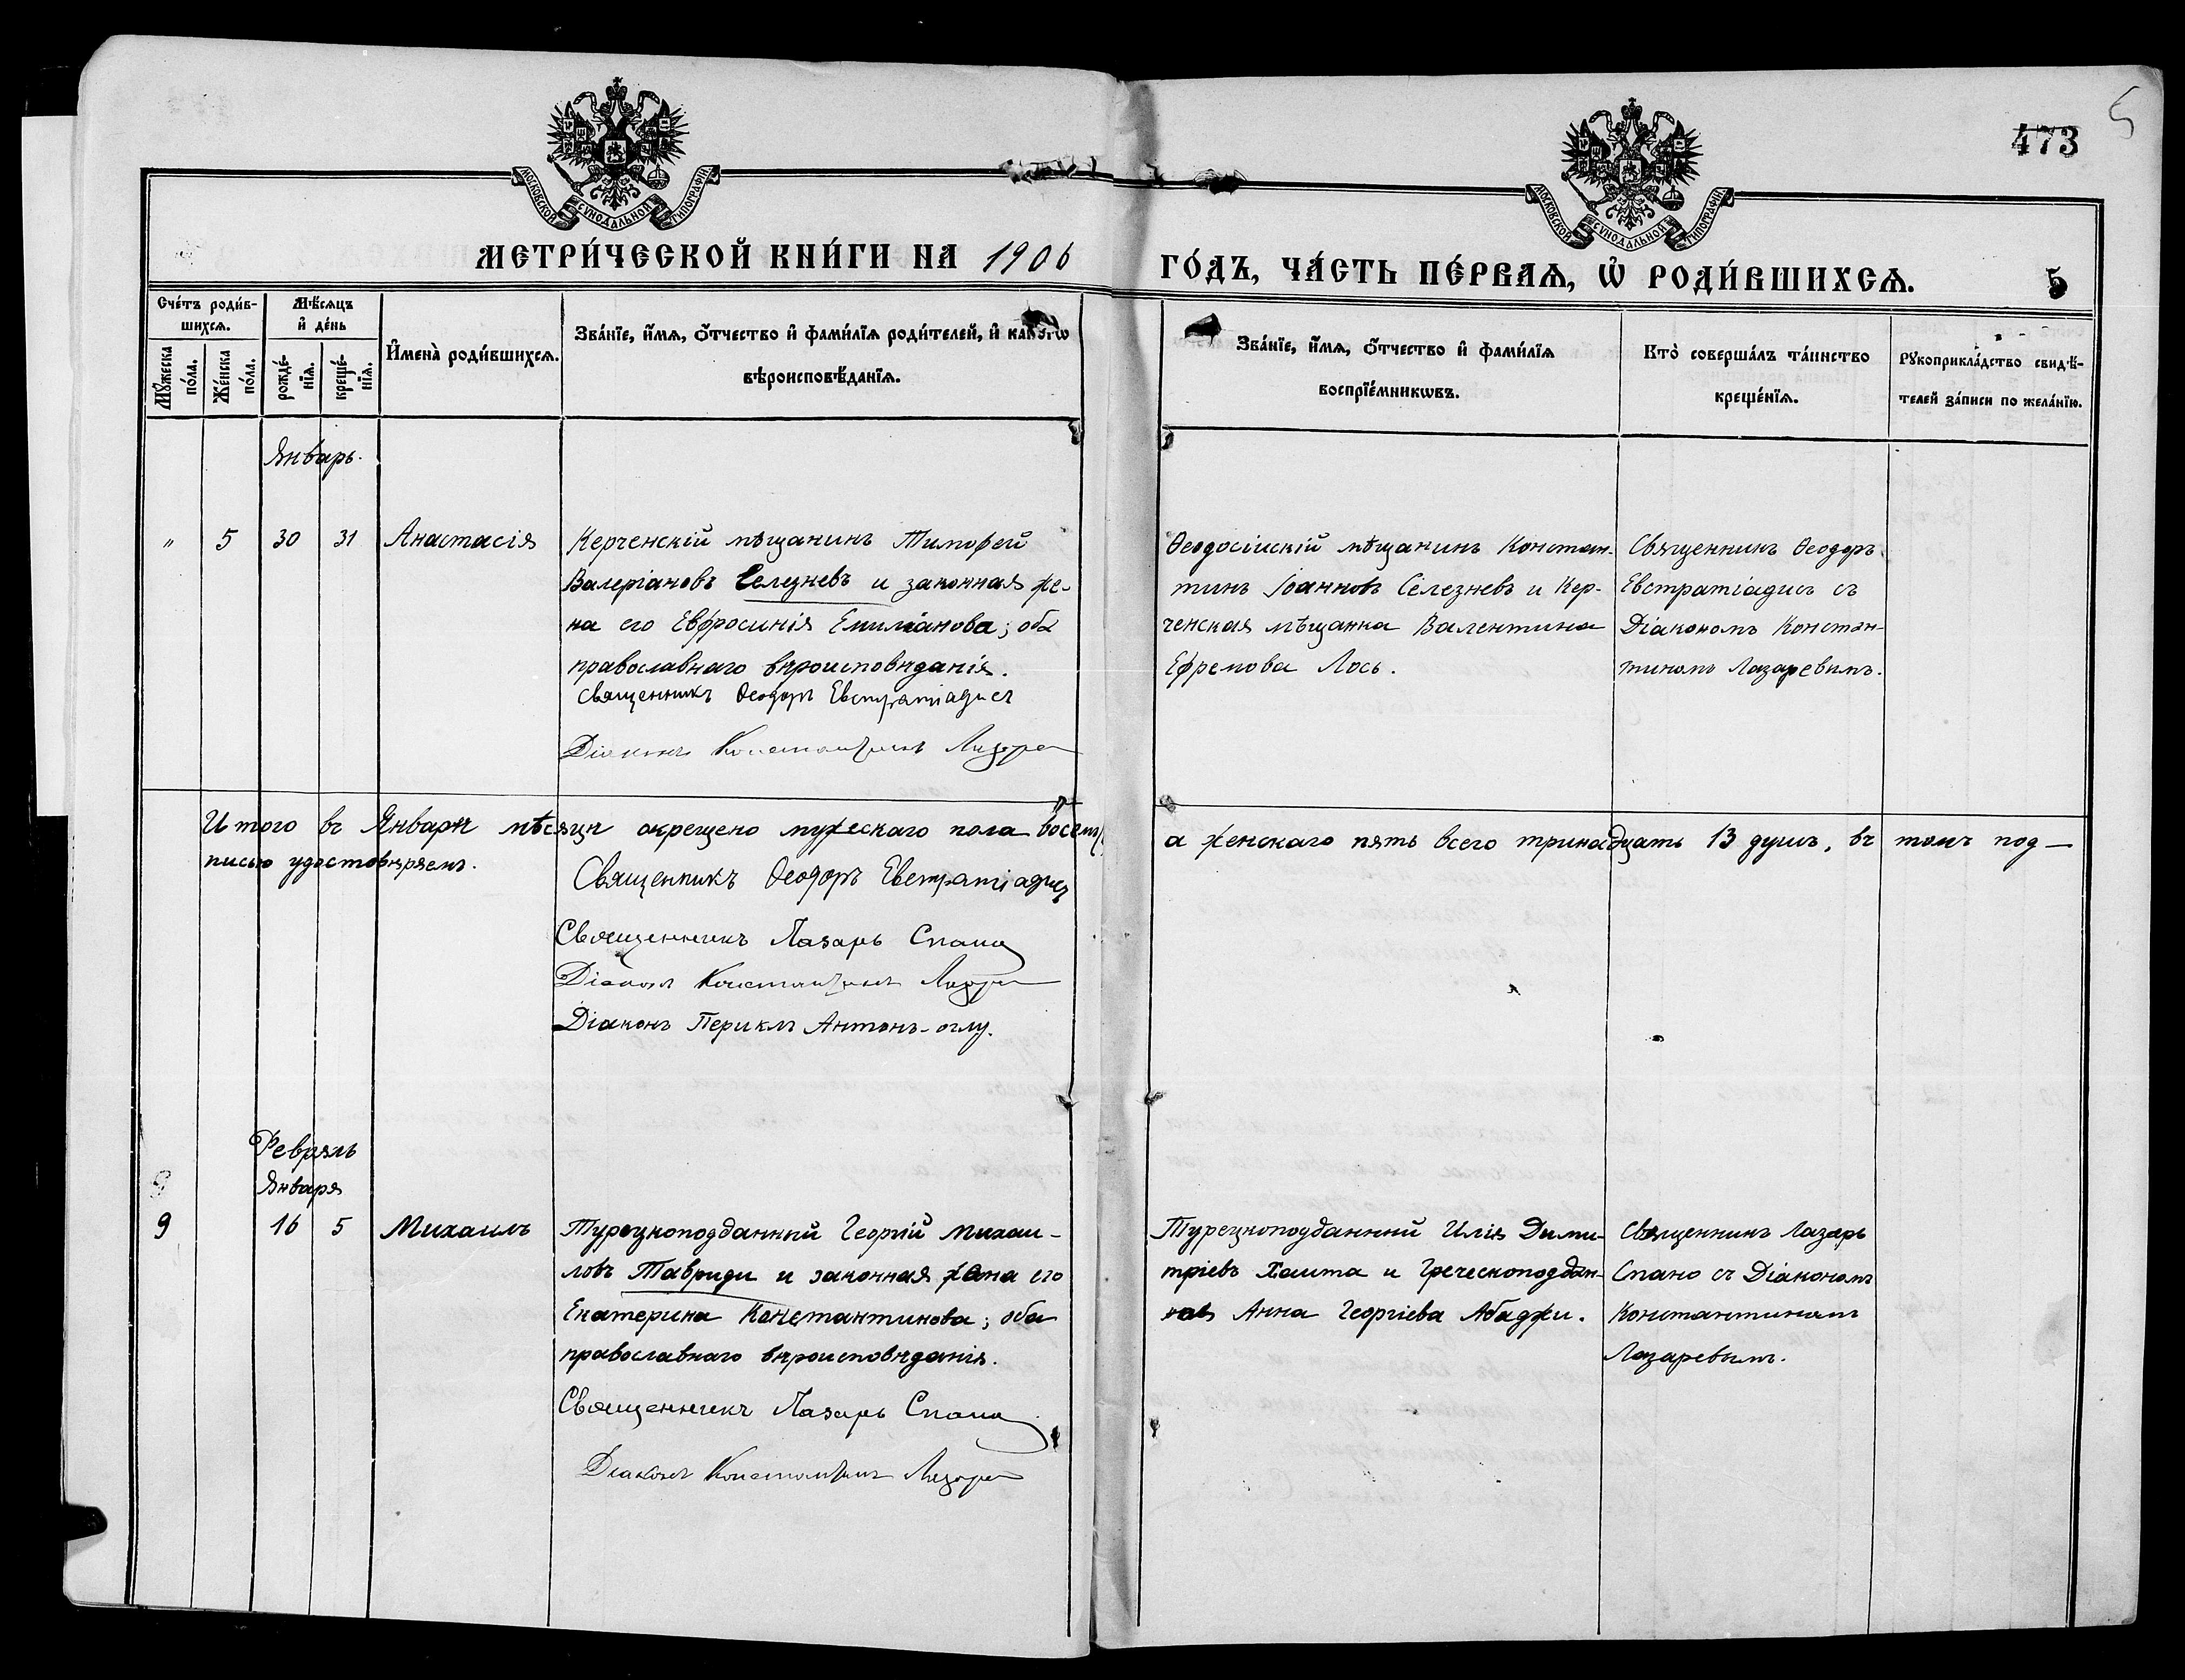 473
5
МОСКОВСКОЙ СѴНОДАЛЬНОЙ ТИПОГРАФІИ
МОСКОВСКОЙ СѴНОДАЛЬНОЙ ТИПОГРАФІИ
МЕТРИ́ЧЕСКОЙ КНИ́ГИ НА 1906
ГО́ДЪ, ЧА́СТЬ ПЕ́РВАѦ, Ѡ҆ РОДИ́ВШИХСѦ.
5
Сче́тъ роди́в-
шихсѧ.
Мꙋ́жеска
по́ла.
Же́нска
по́ла.
Мѣ́сѧцъ
и҆ де́нь
рожде́-
нїѧ.
креще́-
нїѧ.
И҆мена̀ роди́вшихсѧ.
Зва́нїе, и҆́мѧ, ѻ҆́тчество и҆ фами́лїѧ роди́телей, и҆ како́гѡ
вѣроисповѣ́данїѧ.
Зва́нїе, и҆́мѧ, ѻ҆́тчество и҆ фами́лїѧ
воспрїе́мникѡвъ.
Кто̀ соверша́лъ та́инство
креще́нїѧ.
Рꙋкоприкла́дство свидѣ́-
телей за́писи по жела́нїю.
Январь.
" 5 30 31 Анастасія
Керченскій мѣщанинъ Тимофей
Валеріановъ Селезневъ и законная же-
на его Евфросинія Емиліанова; оба
православнаго вѣроисповѣданія.
Священникъ Ѳеодоръ Евстратіадисъ
Діаконъ Константинъ Лазаре
Ѳеодосійскій мѣщанинъ Констан-
тинъ Іоанновъ Селезневъ и Кер-
ченская мѣщанка Валентина
Ефремова Лось.
Священникъ Ѳеодоръ
Евстратіадисъ съ
Діакономъ Констан-
тиномъ Лазаревымъ.
Итого въ Январѣ мѣсяцѣ окрещено мужескаго пола восемь
а женскаго пять всего тринадцать 13 душъ, въ томъ под-
писью удостовѣряемъ.
Священникъ Ѳеодоръ Евстратіадисъ
Священникъ Лазарь Спано
Діаконъ Константинъ Лазаре
Діаконъ Периклъ Антонъ-оглу.
Февраль
Января
9 16 5 Михаилъ
Турецкоподданный Георгій Михаи-
ловъ Тавриди и законная жена его
Екатерина Константинова; оба
православнаго вѣроисповѣданія.
Священникъ Лазарь Спано
Діаконъ Константинъ Лазаре
Турецкоподданный Илія Дими-
тріевъ Хашта и Греческоподдан-
ная Анна Георгіева Абаджи.
Священникъ Лазарь
Спано съ Діакономъ
Константиномъ
Лазаревымъ.